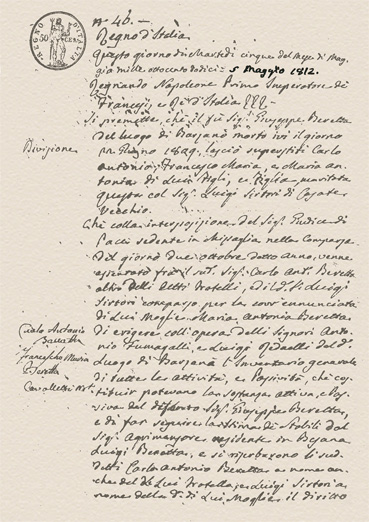 REGNO D'ITALIA
50 CEN.
N.° 46. —
Regno d'Italia
Questo giorno di Martedì cinque del Mese di Mag-
gio mille ottocento dodici = 5 Maggio 1812.
Regnando Napoleone Primo Imperatore de
Francesi, e Re d'Italia
Si premette, che il fu Sig.r Giuseppe Beretta
del luogo di Barzanò morto ivi il giorno
Giugno lasciò superstiti Carlo
Antonio, Francesco Maria, e Maria An-
tonia di Lui Figli, e Figlia, maritata
questa col Sig.r Luigi Sirtori di Casate
Vecchio.
Divisione
Che coll' interposizione del Sig.r Giudice di
Pace sedente in Missaglia nella Comparsa
del giorno due ottobre detto anno, venne
fra il Sig.r Carlo Ant.o Beretta
altro delli detti Fratelli, ed il d.o S.r Luigi
Sirtori per la
di Lui Moglie Maria Antonia Beretta
di erigere coll' opera delli Signori Anto-
nio Fumagalli, e Luigi del d.o
Luogo di Barzanò l'Inventario generale
di tutte le attività, e Passività, che co-
stituir potevano la sostanza attiva, e Pas-
siva del defonto Sig.r Giuseppe Beretta,
e di far seguire la stima de Stabili dal
Sig.r Agrimensore residente in
Luigi e si riserbarono li sud-
detti Carlo Antonio Beretta a nome an-
che del di Lui Fratello, e Luigi Sirtori a
nome della d.a di Lui Moglie il diritto
Carlo Antonio
Beretta
Francesco Maria
Beretta
Cavalletti Not.